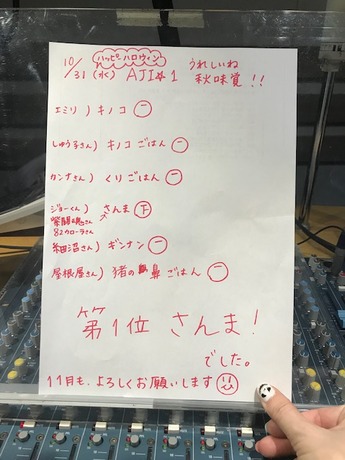 ハッピーハロウィン
10/31(水) AJI★1 うれしいね
秋味覚!!
エミリ)キノコ 一
しゅう子さん)キノコごはん 一
カンナさん)くりごはん 一
ジョーくん)さんま 下
紫闘魂さん
82ウローラさん
糸田沼さん)ギンナン 一
屋根屋さん)猪の鼻ごはん 一
第1位 さんま!
でした。
11月も、よろしくお願いします